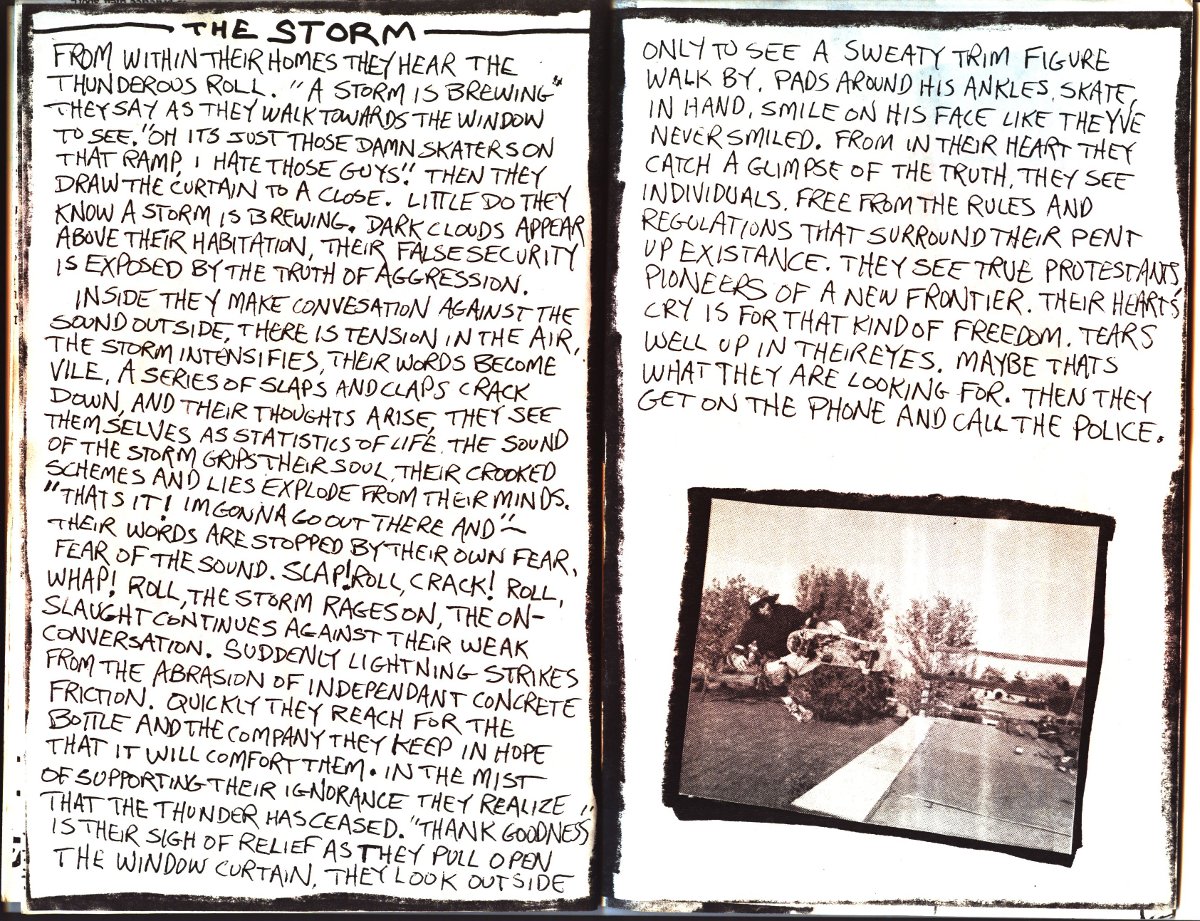 THE STORM
FROM WITHIN THEIR HOMES THEY HEAR THE
THUNDEROUS ROLL. "A STORM IS BREWING"
THEY SAY AS THEY WALK TOWARDS THE WINDOW
TO SEE. "OH ITS JUST THOSE DAMN SKATERS ON
THAT RAMP, I HATE THOSE GUYS". THEN THEY
DRAW THE CURTAIN TO A CLOSE. LITTLE DO THEY
KNOW A STORM IS BREWING. DARK CLOUDS APPEAR
ABOVE THEIR HABITATION, THEIR FALSE SECURITY
IS EXPOSED BY THE TRUTH OF AGGRESSION.
INSIDE THEY MAKE CONVESATION AGAINST THE
SOUND OUTSIDE, THERE IS TENSION IN THE AIR,
THE STORM INTENSIFIES, THEIR WORDS BECOME
VILE. A SERIES OF SLAPS AND CLAPS CRACK
DOWN, AND THEIR THOUGHTS ARISE, THEY SEE
THEMSELVES AS STATISTICS OF LIFE. THE SOUND
OF THE STORM GRIPS THEIR SOUL, THEIR CROOKED
SCHEMES AND LIES EXPLODE FROM THEIR MINDS.
"THATS IT! IM GONNA GO OUT THERE AND"~
THEIR WORDS ARE STOPPED BY THEIR OWN FEAR,
FEAR OF THE SOUND. SLAP! ROLL, CRACK! ROLL,
WHAP! ROLL, THE STORM RAGES ON, THE ON-
SLAUGHT CONTINUES AGAINST THEIR WEAK
CONVERSATION. SUDDENLY LIGHTNING STRIKES
FROM THE ABRASION OF INDEPENDANT CONCRETE
FRICTION. QUICKLY THEY REACH FOR THE
BOTTLE AND THE COMPANY THEY KEEP IN HOPE
THAT IT WILL COMFORT THEM. IN THE MIST
OF SUPPORTING THEIR IGNORANCE THEY REALIZE
THAT THE THUNDER HAS CEASED. "THANK GOODNESS"
IS THEIR SIGH OF RELIEF AS THEY PULL OPEN
THE WINDOW CURTAIN, THEY LOOK OUTSIDE
ONLY TO SEE A SWEATY TRIM FIGURE
WALK BY. PADS AROUND HIS ANKLES, SKATE,
IN HAND, SMILE ON HIS FACE LIKE THEYVE
NEVER SMILED. FROM IN THEIR HEART THEY
CATCH A GLIMPSE OF THE TRUTH, THEY SEE
INDIVIDUALS, FREE FROM THE RULES AND
REGULATIONS THAT SURROUND THEIR PENT
UP EXISTANCE. THEY SEE TRUE PROTESTANTS,
PIONEERS OF A NEW FRONTIER. THEIR HEARTS'
CRY IS FOR THAT KIND OF FREEDOM. TEARS
WELL UP IN THEIR EYES. MAYBE THATS
WHAT THEY ARE LOOKING FOR. THEN THEY
GET ON THE PHONE AND CALL THE POLICE.